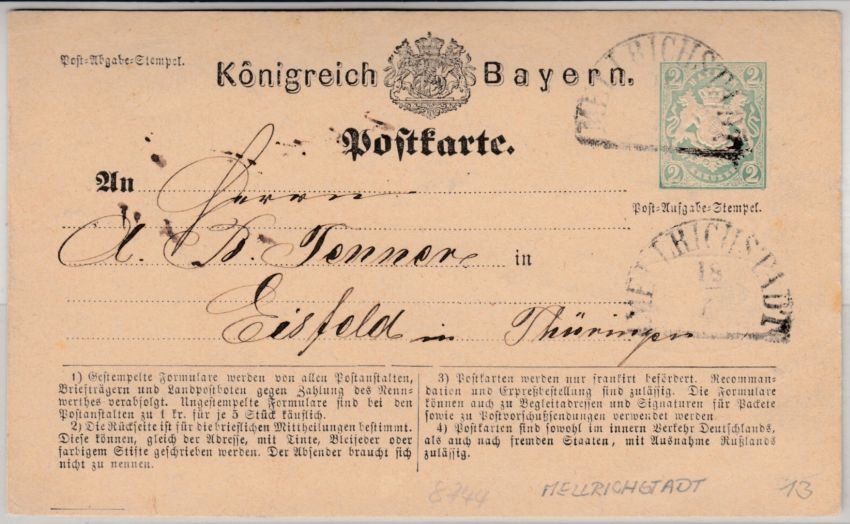 Post-Abgabe-Stempel.
Königreich Bayern.
MELLRICHSTADT
2 2
2 2
Postkarte.
An Herrn
Post-Aufgabe-Stempel.
A. B. Tenner in
MELLRICHSTADT
18
7
Eisfeld in Thüringen
1) Gestempelte Formulare werden von allen Postanstalten,
Briefträgern und Landpostboten gegen Zahlung des Nenn-
werthes verabfolgt. Ungestempelte Formulare sind bei den
Postanstalten zu 1 kr. für je 5 Stück käuflich.
2) Die Rückseite ist für die brieflichen Mittheilungen bestimmt.
Diese können, gleich der Adresse, mit Tinte, Bleifeder oder
farbigem Stifte geschrieben werden. Der Absender braucht sich
nicht zu nennen.
3) Postkarten werden nur frankirt befördert. Recomman-
dation und Expreßbestellung sind zulässig. Die Formulare
können auch zu Begleitadressen und Signaturen für Packete
sowie zu Postvorschußsendungen verwendet werden.
4) Postkarten sind sowohl im innern Verkehr Deutschlands,
als auch nach fremden Staaten, mit Ausnahme Rußlands
zulässig.
8744 MELLRICHSTADT 13